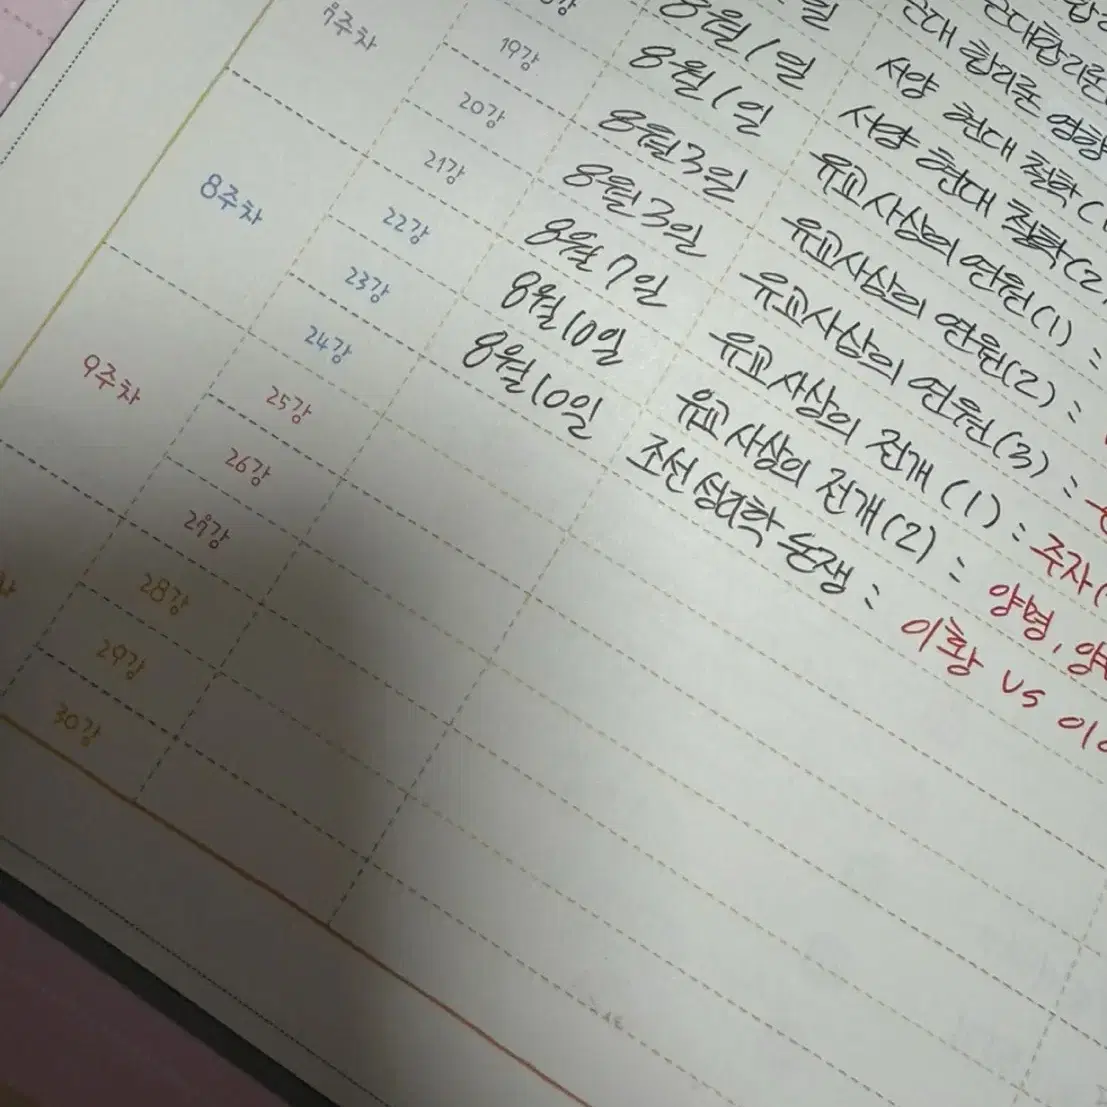 근대합리론
일 근대 합리론 영향
서양 현대 철학(1
7주차 강 8월 1일 서양 현대 철학(2)
8월 1일 유교사상의 연원(1) :
19강 8월 3일 유교사상의 연원(2) :
20강 8월 3일 유교사상의 연원(3) :
21강 8월 7일 유교사상의 전개(1) : 주자(
8주차 22강 8월 10일 유교사상의 전개(2) : 양명,
23강 8월 10일 조선 성리학 논쟁 : 이황 vs 이
24강
9주차 25강
26강
27강
28강
29강
30강